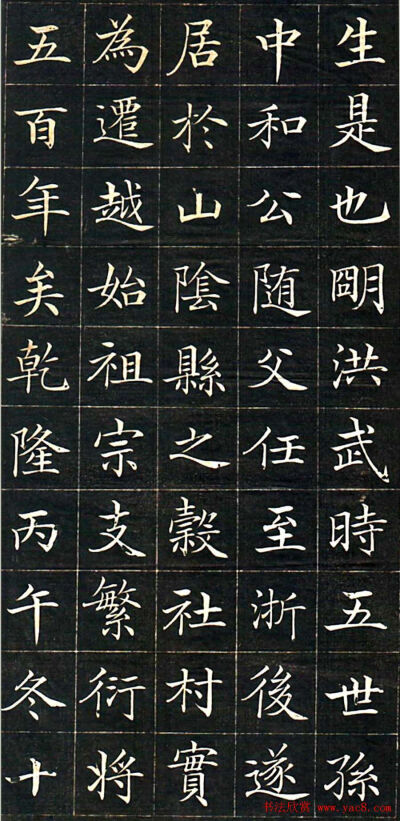 生是也明洪武時五世孫
中和公随父任至浙後遂
居於山陰縣之穀社村實
為遷越始祖宗支繁衍將
五百年矣乾隆丙午冬十
书法欣赏 www.yac8.com